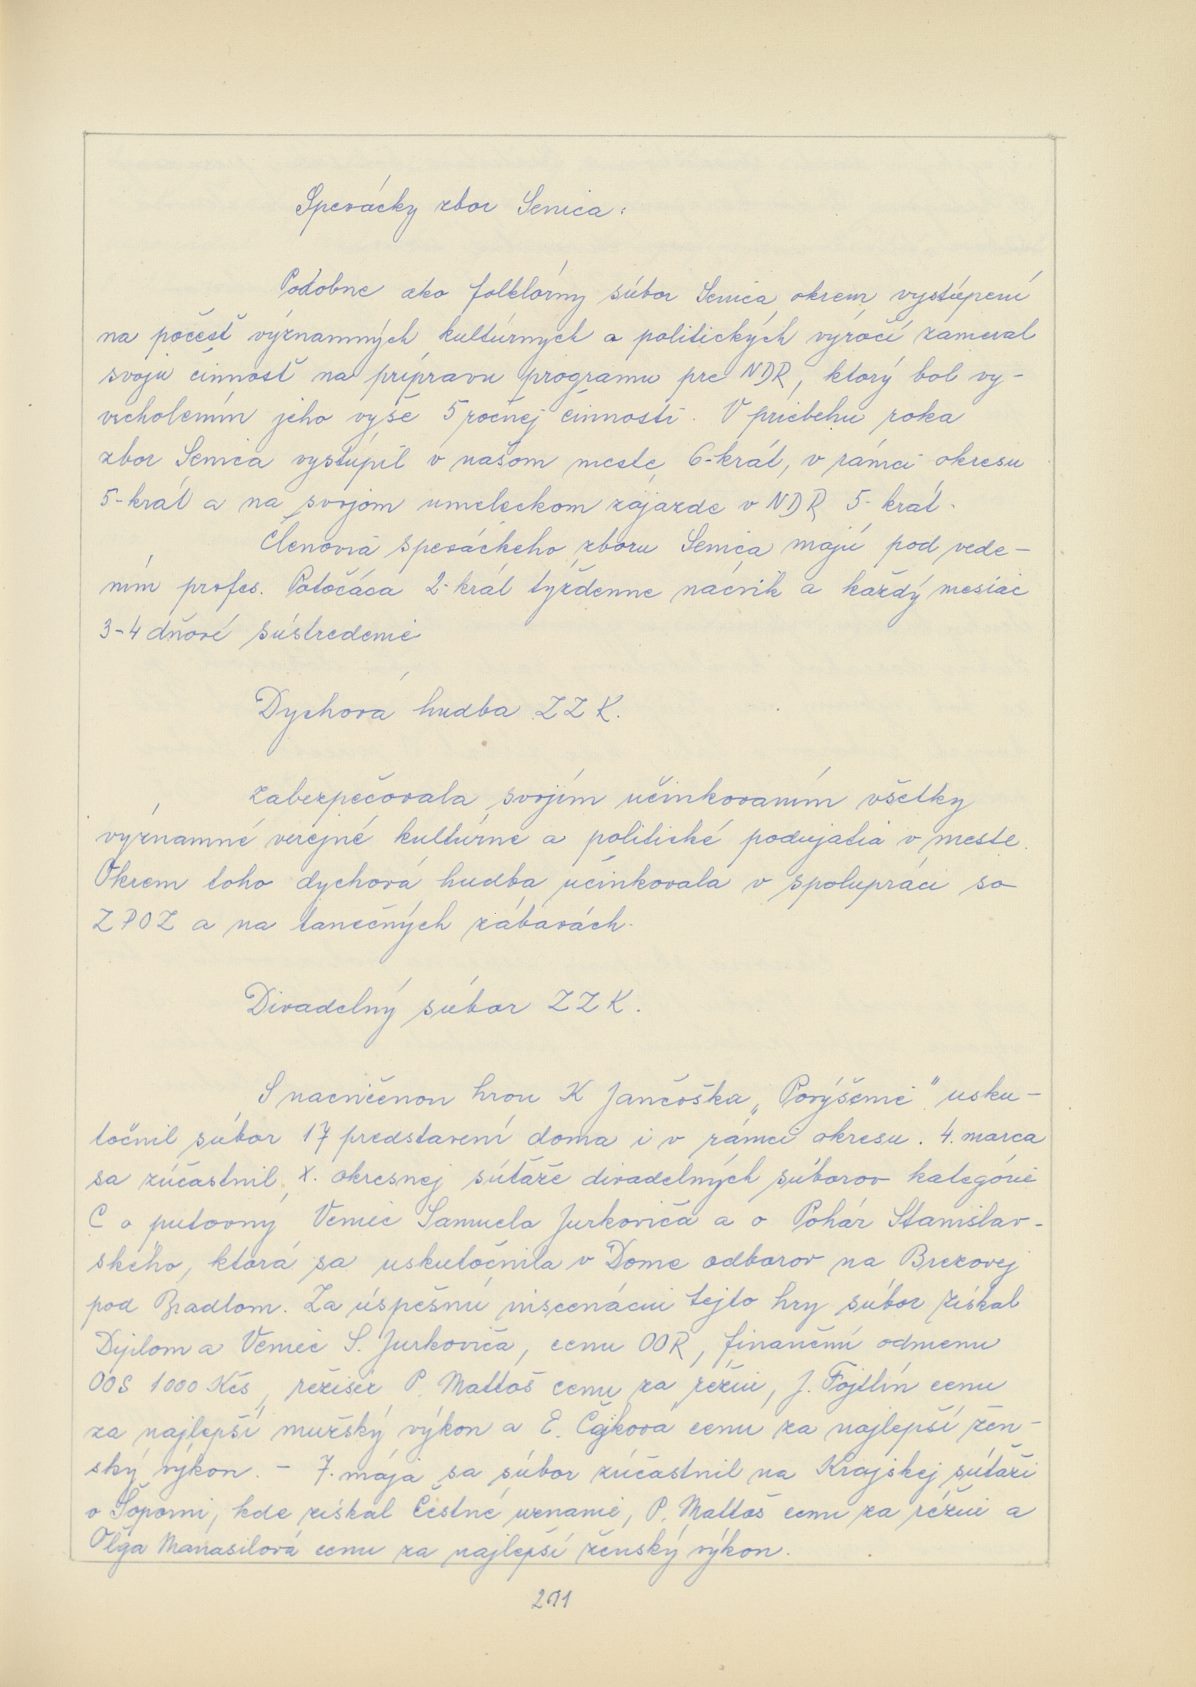 Spevácky zbor Senica:
Podobne ako folklórny súbor Senica okrem vystúpení
na počesť významných kultúrnych a politických výročí zameral
svoju činnosť na prípravu programu pre NDR, ktorý bol vy-
vrcholením jeho vyše 5 ročnej činnosti. V priebehu roka
zbor Senica vystúpil v našom meste 6-krát, v rámci okresu
5-krát a na svojom umeleckom zájazde v NDR 5-krát.
Členovia speváckeho zboru Senica majú pod vede-
ním profes. Potočáca 2-krát týždenne nácvik a každý mesiac
3-4 dňové sústredenie
Dychová hudba ZZK.
zabezpečovala svojím učinkovaním všetky
významné verejné kultúrne a politické podujatia v meste.
Okrem toho dychová hudba učinkovala v spolupráci so
ZPOZ a na tanečných zábavách.
Divadelný súbor ZZK.
S nacvičenou hrou K Jančoška „Povýšenie" usku-
točnil súbor 17 predstavení doma i v rámci okresu. 4. marca
sa zúčastnil X. okresnej súťaže divadelných súborov kategórie
C o putovný Veniec Samuela Jurkoviča a o Pohár Stanislav-
ského, ktorá sa uskutočnila v Dome odborov na Brezovej
pod Bradlom. Za úspešnú inscenáciu tejto hry súbor získal
Diplom a Veniec S. Jurkoviča, cenu OOR, finančnú odmenu
OOS 1000 Kčs, režisér P. Mattoš cenu za réžiu, J. Fojtlín cenu
za najlepší mužský výkon a E. cenu za najlepší žen-
ský výkon. - 7. mája sa súbor zúčastnil na Krajskej súťaži
v Šoporni, kde získal Čestné uznanie, P. Mattoš cenu za réžiu a
Oľga Manasilová cenu za najlepší ženský výkon.
201